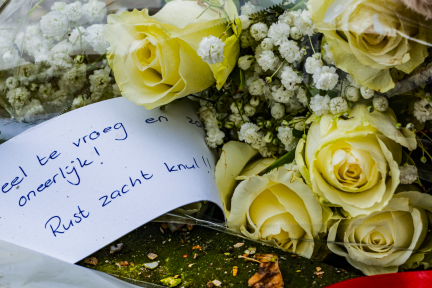 eel te vroeg en zo
oneerlijk!
Rust zacht knul!!